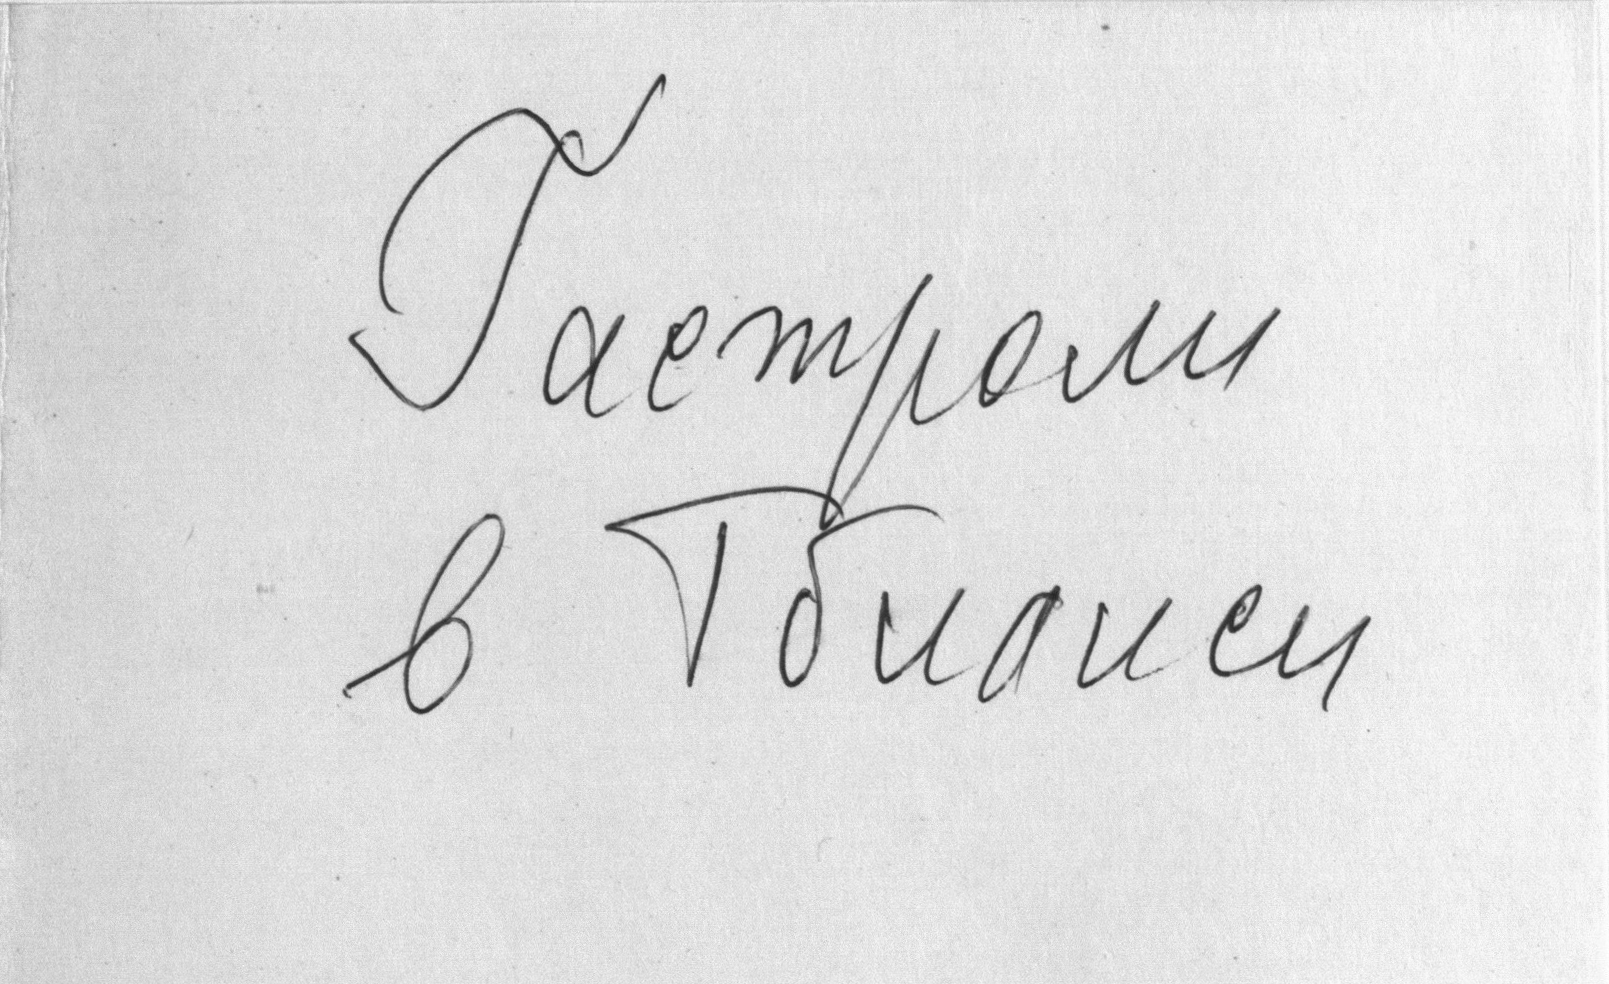 Гастроли
в Тбилиси